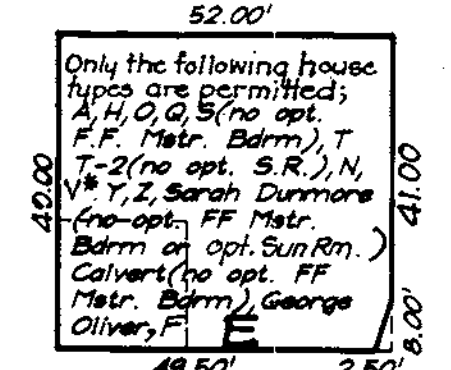 52.00'
Only the following house
types are permitted;
A, H, O, Q, S (no opt.
F.F. Mstr. Bdrm), T
T-2 (no opt. S.R.), N,
V*. Y, Z, Sarah Dunmore
(no opt. FF Mstr.
Bdrm or opt. Sun Rm.)
Calvert (no opt. FF
Mstr. Bdrm), George
Oliver, F
E
49.00
41.00
8.00'
49.50'
2.50'